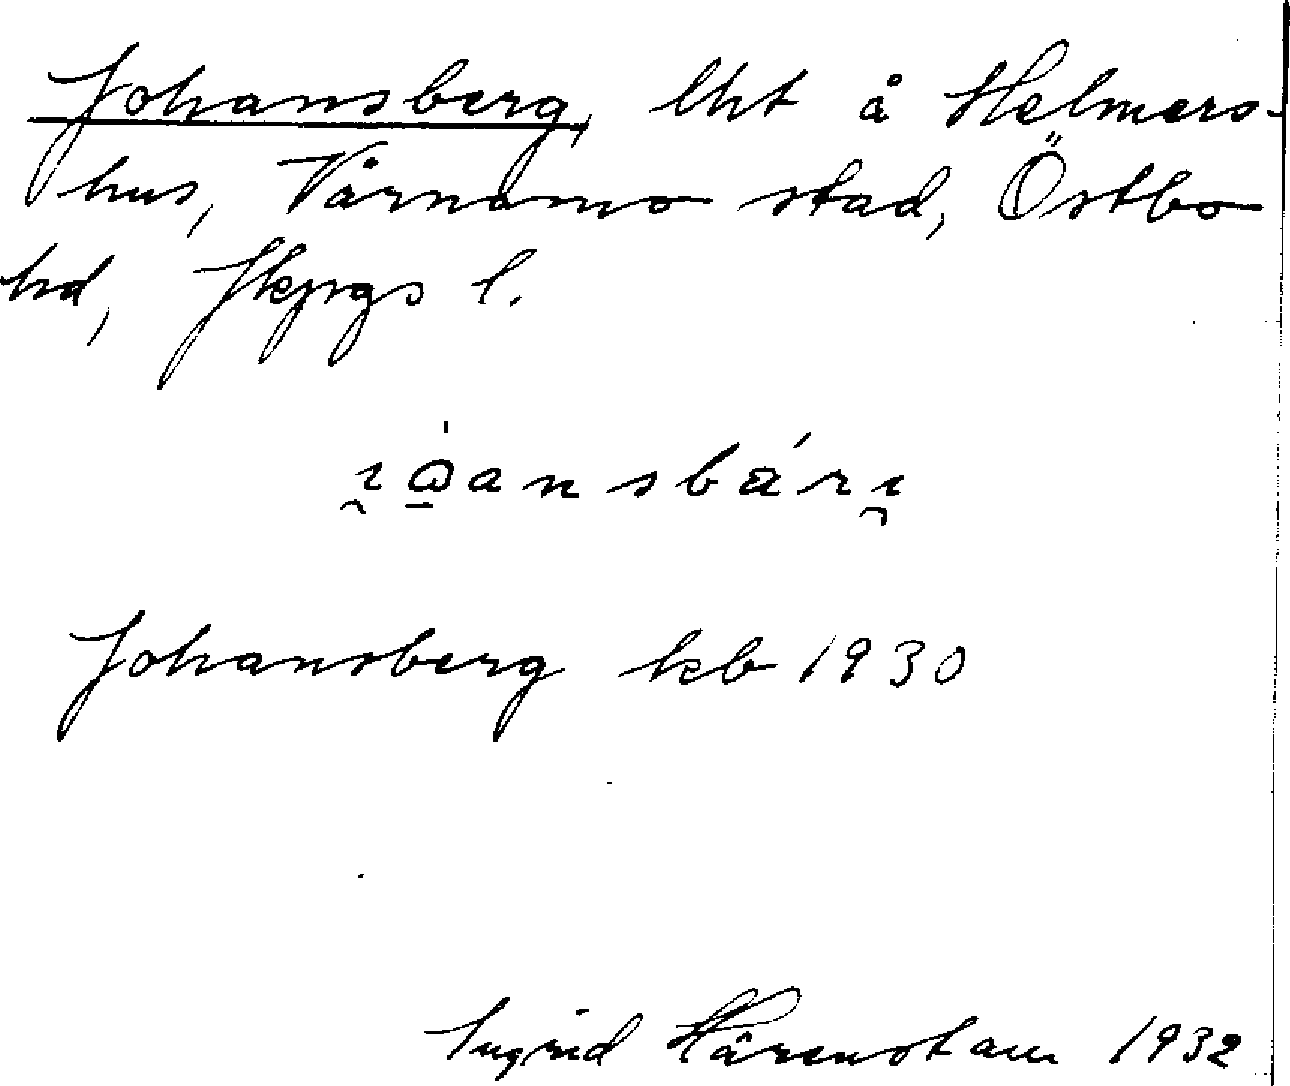 Johansberg, lht å Helmers-
hus, Värnamo stad, Östbo
hd, Jkpgs l.
Johansberg kb 1930
Ingrid Härenstam 1932